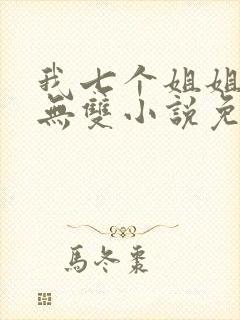 我七个姐姐
無雙小說免
馬冬棗